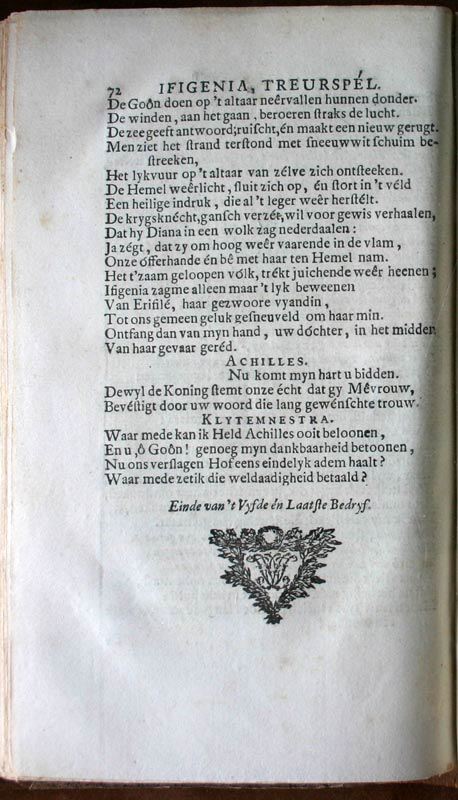 72 IFIGENIA, TREURSPÉL.
De Goôn doen op 't altaar neêrvallen hunnen donder.
De winden, aan het gaan, beroeren straks de lucht.
De zee geeft antwoord; ruiſcht, én maakt een nieuw gerugt.
Men ziet het ſtrand terſtond met ſneeuwwit ſchuim be-
ſtreeken,
Het lykvuur op 't altaar van zélve zich ontſteeken.
De Hemel weêrlicht, ſluit zich op, én ſtort in 't véld
Een heilige indruk, die al 't leger weêr herſtélt.
De krygsknécht, ganſch verzét, wil voor gewis verhaalen,
Dat hy Diana in een wolk zag nederdaalen:
Ja zégt, dat zy om hoog weêr vaarende in de vlam,
Onze ófferhande én bê met haar ten Hemel nam.
Het t'zaam geloopen vólk, trékt juichende weêr heenen;
Ifigenia zag me alleen maar 't lyk beweenen
Van Erifilé, haar gezwoore vyandin,
Tot ons gemeen geluk geſneuveld om haar min.
Ontfang dan van myn hand, uw dóchter, in het midden
Van haar gevaar geréd.
ACHILLES.
Nu komt myn hart u bidden.
Dewyl de Koning ſtemt onze écht dat gy Mêvrouw,
Bevéſtigt door uw woord die lang gewénſchte trouw.
KLYTEMNESTRA.
Waar mede kan ik Held Achilles ooit beloonen,
En u, ô Goôn! genoeg myn dankbaarheid betoonen,
Nu ons verſlagen Hof eens eindelyk adem haalt?
Waar mede zet ik die weldaadigheid betaald?
Einde van 't Vyfde én Laatſte Bedryf.